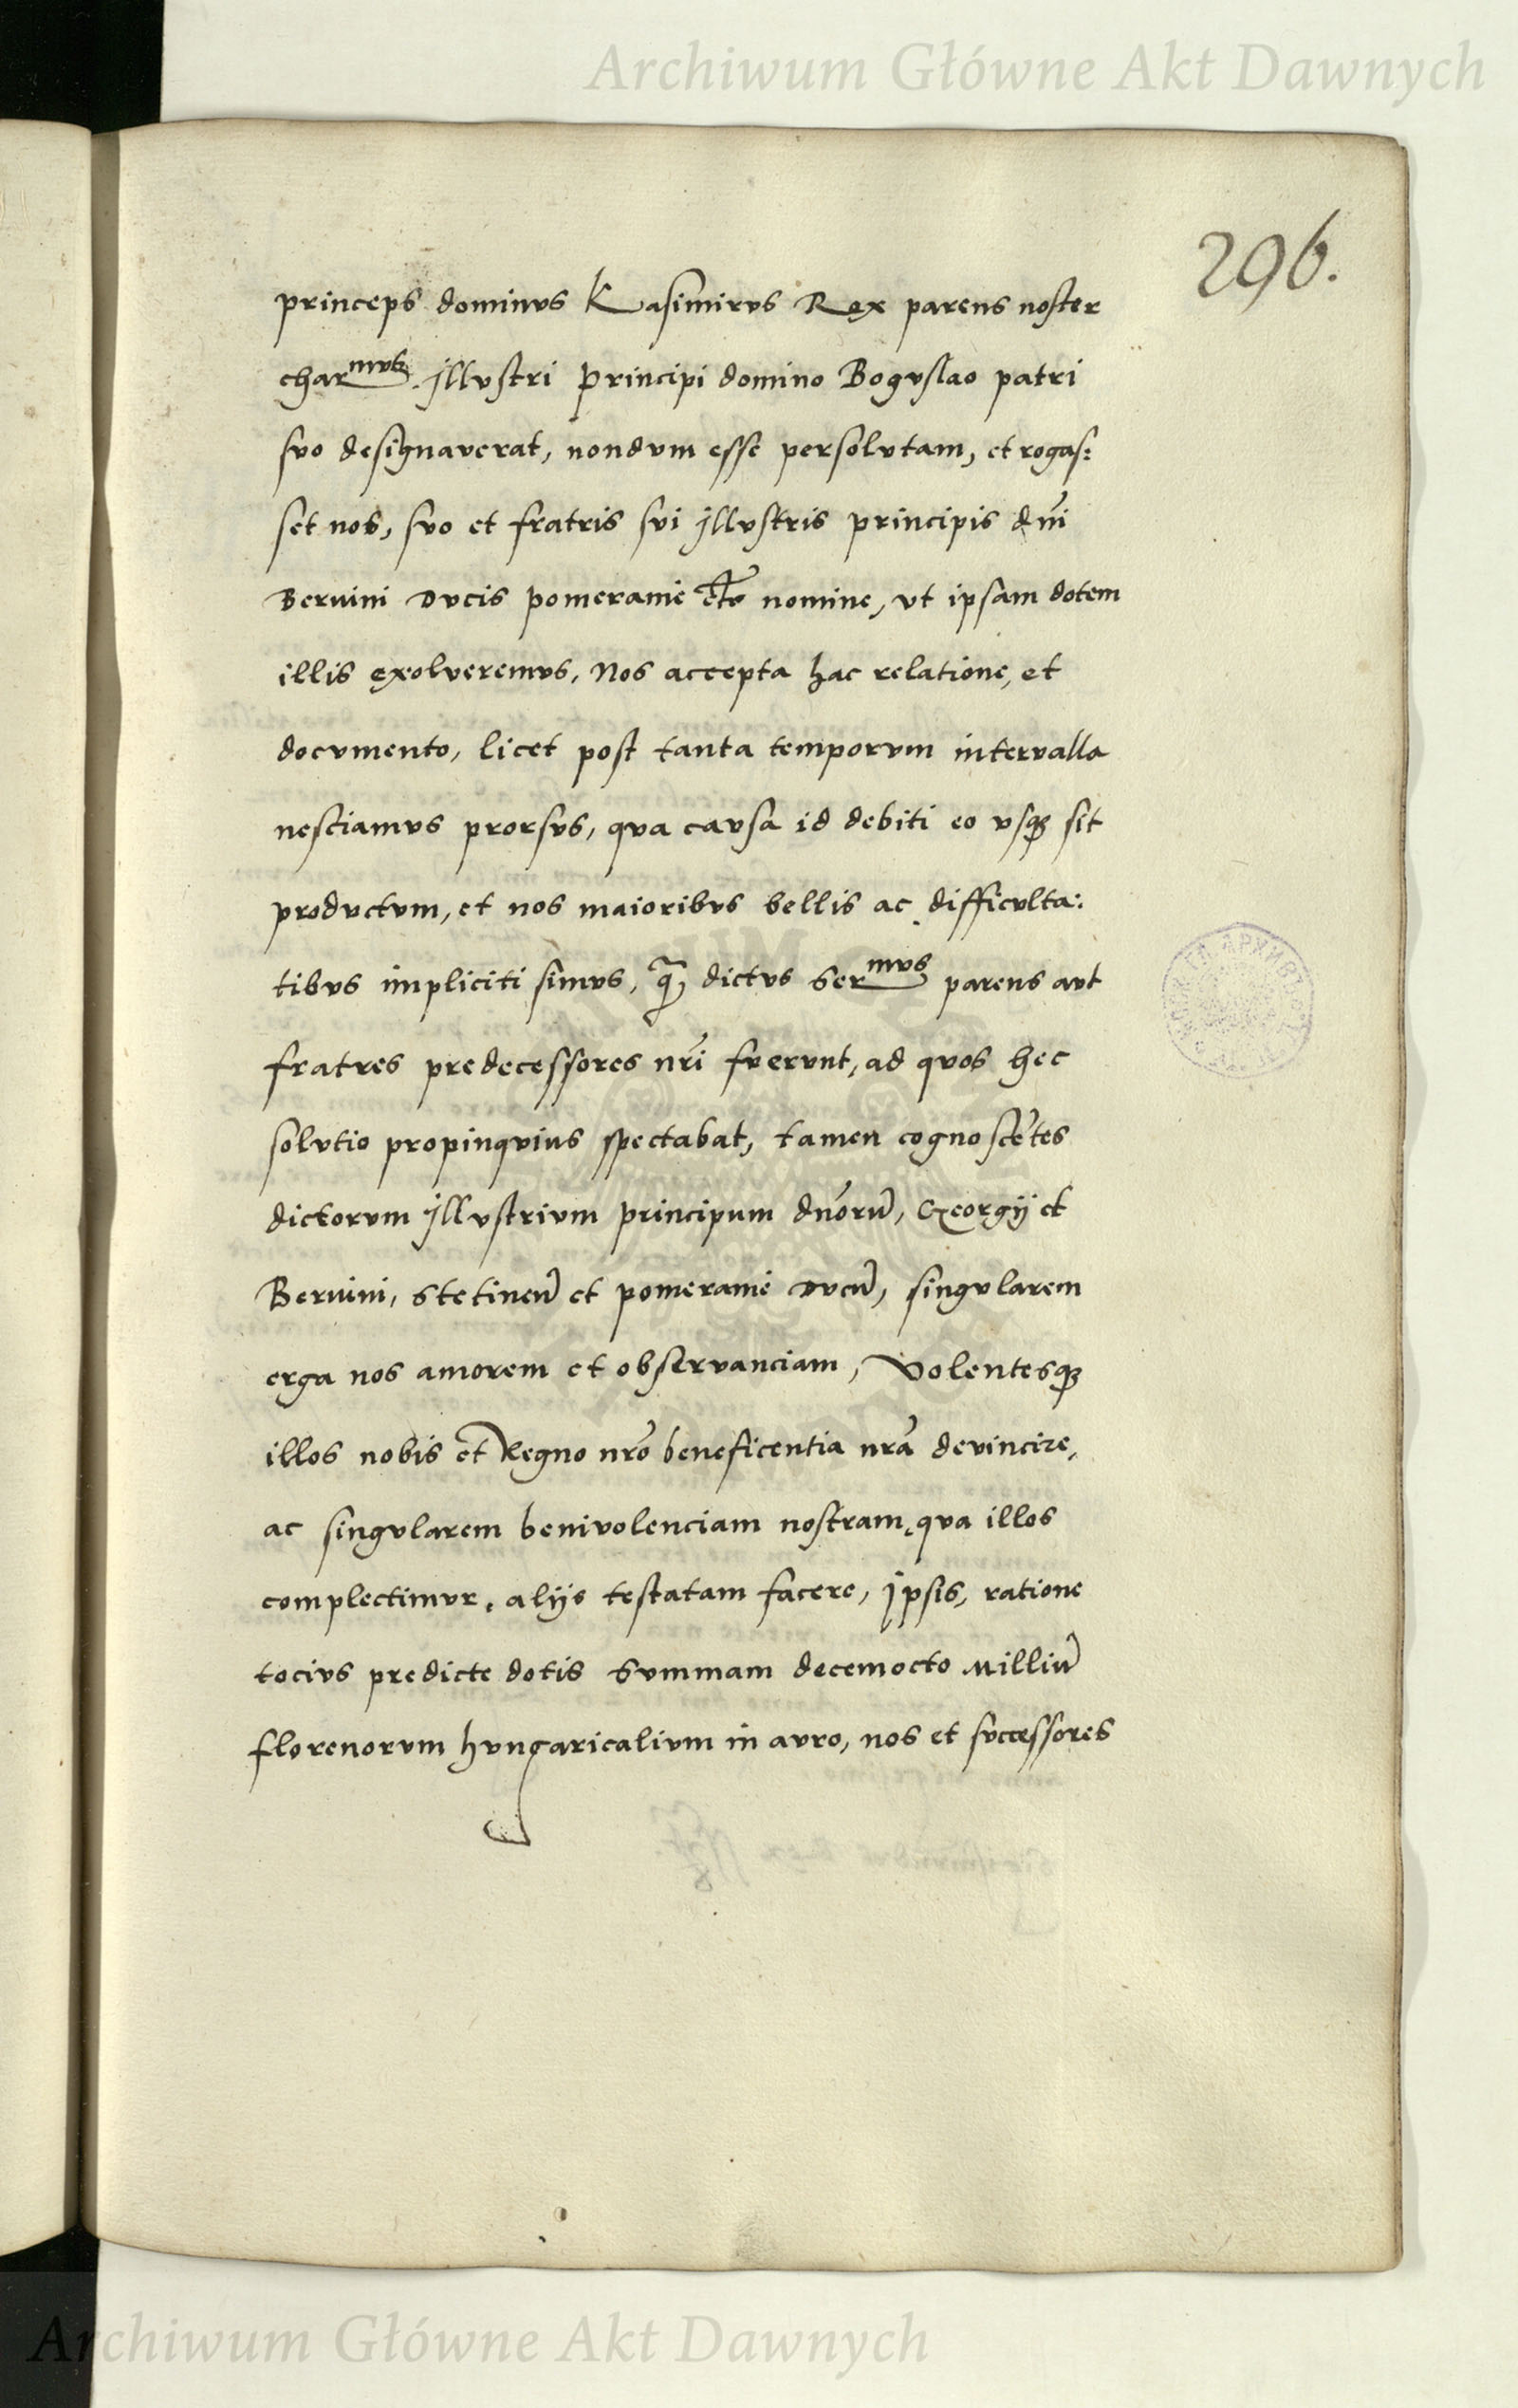 Archiwum Główne Akt Dawnych
296.
princeps dominus Kasimirus Rex parens noster
charmus. Illustri Principi domino Boguslao patri
suo designauerat, nondum esse persolutam, et rogas:
set nos, suo et fratris sui Illustris principis dnĩ
Bernini Ducis Pomeranie etc nomine, ut ipsam dotem
illis exolueremus, Nos accepta hac relatione, et
documento, licet post tanta temporum interualla
nesciamus prorsus, qua causa id debiti eo usqȝ sit
productum, et nos maioribus bellis ac difficulta:
tibus impliciti simus, q̃ȝ dictus Sermus parens aut
fratres predecessores nrĩ fuerunt, ad quos hec
solutio propinquius spectabat, tamen cognoscẽtes
dictorum Illustrium principum dnõrũ, Georgij et
Bernini, Stetineñ et pomeranie Ducũ, singularem
erga nos amorem et obseruanciam, Volentesqȝ
illos nobis et Regno nrõ beneficentia nrã deuincire,
ac singularem beniuolenciam nostram, qua illos
complectimur, alijs testatam facere, Ipsis, ratione
tocius predicte dotis Summam decemocto Milliũ
florenorum hungaricalium in auro, nos et successores
Archiwum Główne Akt Dawnych